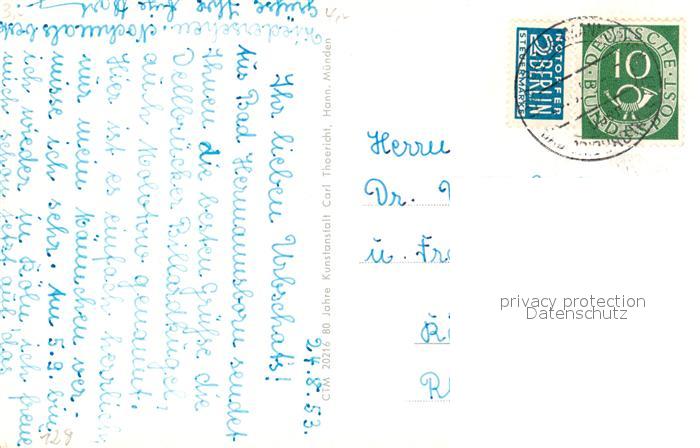 24.8.53.
Ihr lieben Urbschat's!
Aus Bad Hermannsborn sendet
Ihnen die besten Grüße die
Dellbrücker Billardkugel,
auch Molotow genannt.
Hier ist es einfach herrlich
nur mein Männchen ver-
misse ich sehr. Am 5.9. bin
ich wieder in Köln, ich freue
mich schon jetzt auf das
Wiedersehen. Nochmals beste
Grüße Ihre
CTM 20216 80 Jahre Kunstanstalt Carl Thoericht, Hann. Münden
NOTOPFER
2 BERLIN
STEUERMARKE
DEUTSCHE
BUNDESPOST
10
Herrn
Dr.
u. Fr
privacy protection
Datenschutz
129